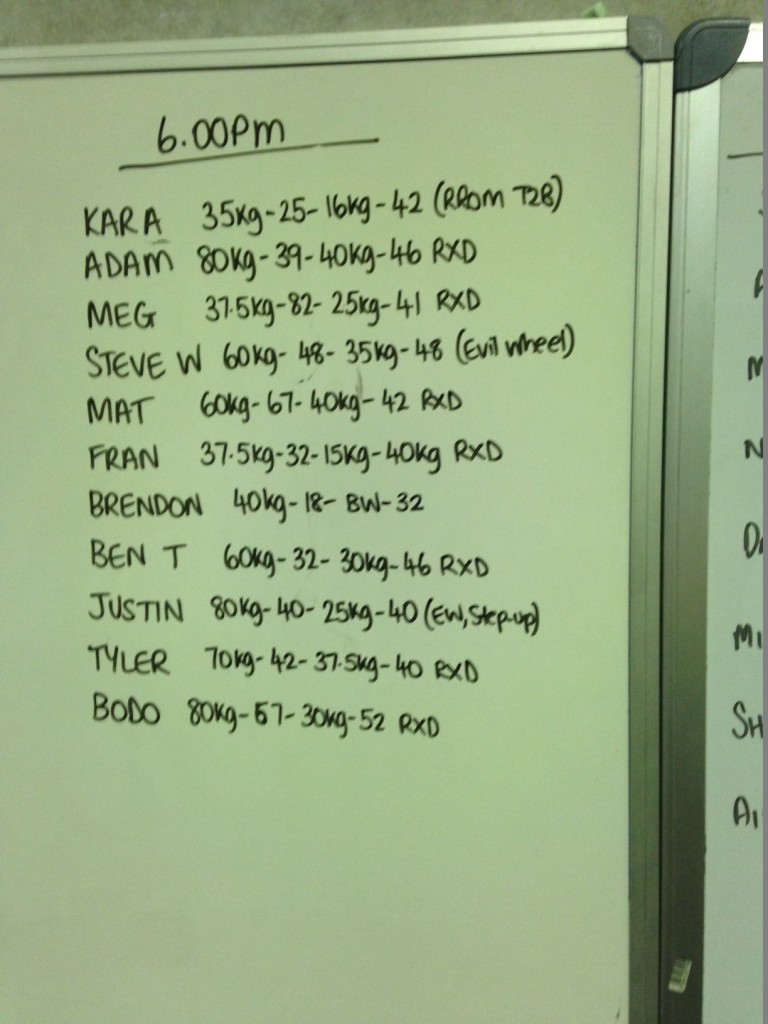 6.00Pm
KARA 35Kg-25-16kg-42 (RROM T2B)
ADAM 80Kg-39-40Kg-46 RXD
MEG 37.5kg-82-25kg-41 RXD
STEVE W 60kg-48-35kg-48 (Evil wheel)
MAT 60kg-67-40kg-42 RXD
FRAN 37.5kg-32-15Kg-40kg RXD
BRENDON 40kg-18-BW-32
BEN T 60kg-32-30kg-46 RXD
JUSTIN 80Kg-40-25Kg-40 (EW,Step-up)
TYLER 70kg-42-37.5kg-40 RXD
BODO 80Kg-57-30kg-52 RXD